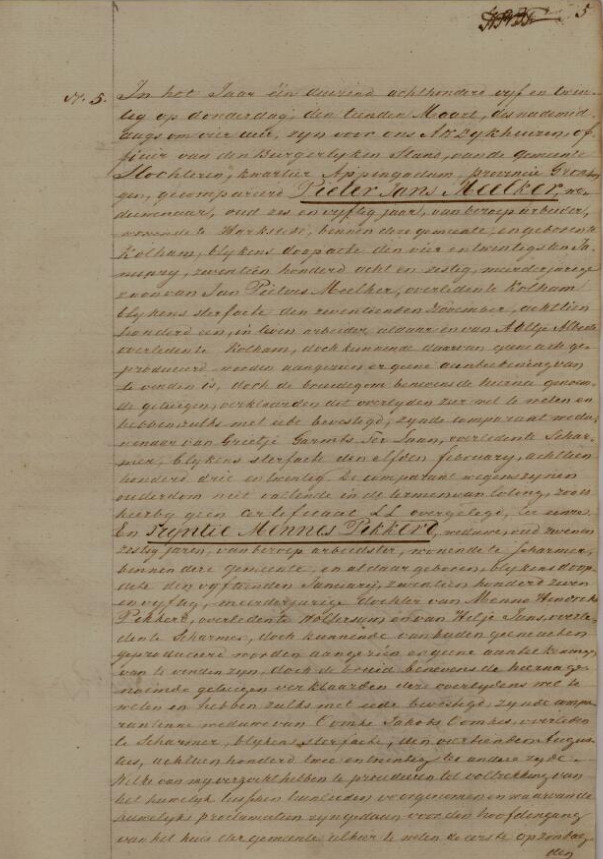 5
N. 5. In het Jaar één duizend achthonderd vyf en twin-
tig op donderdag den tienden Maart, des nademid-
dags om vier uur, zyn voor ons A. Dykhuizen, of-
ficier van den Burgerlyken Stand, van de gemeente
Slochteren, kwartier Appingadam provincie Gronin-
gen, gecompareerd Pieter Jans Meelker, we-
duwenaar, oud zes en vyftig jaar, van beroep arbeider,
wonende te Harkstede, binnen deze gemeente, en geboren te
Kolham, blykens doopacte den vier en twentigsten Ja-
nuary, zeventien honderd acht en zestig, meerderjarige
zoon van Jan Pieters Meelker, overleden te Kolham
blykens sterfacte den zeventienden November, achttien
honderd een, in leven arbeider aldaar en van Aaltje Alberts
overleden te Kolham, doch kunnende daarvan geene acte ge-
produceerd worden aangezien er geene aanteekening van
te vinden is, doch de bruidegom benevens de hierna genoem-
de getuigen, verklaarden dit overlyden zeer wel te weten en
hebben zulks met ede bevestigd, zynde comparant wedu-
wenaar van Grietje Garmts Ter Laan, overleden te Schar-
mer, blykens sterfacte den elfden february, achttien
honderd drie en twintig. De comparant wegens zynen
ouderdom niet vallende in de termen van loting, zoo is
hierby geen certificaat LL overgelegd, ter eenre
En Tryntje Mennes Pikkert, weduwe, oud zeven en
zestig jaren, van beroep arbeidster, wonende te Scharmer,
binnen deze gemeente, en aldaar geboren, blykens doop-
acte den vyftienden January, zeventien honderd zeven
en vyftig, meerderjarige dochter van Menne Hendriks
Pikkert, overleden te Woltersum en van Hilje Jans, overle-
den te Scharmer, doch kunnende van beiden geene acten
geproduceerd worden aangezien er geene aanteekening
van te vinden zyn, doch de bruid benevens de hierna ge-
noemde getuigen verklaarden deze overlydens wel te
weten en hebben zulks met ede bevestigd, zynde compa-
rantinne weduwe van Tomke Jakobs Tomkes, overleden
te Scharmer, blykens sterfacte, den veertienden Augus-
tus, achttien honderd twee en twintig ter andere zyde.
Welke van my verzocht hebben te procederen tot voltrekking van
het huwelyk tusschen hunlieden voorgenomen en waarvan de
huwelyks proclamatien zyn gedaan voor den hoofdingang
van het huis der gemeente alhier te weten de eerste op zondag
den